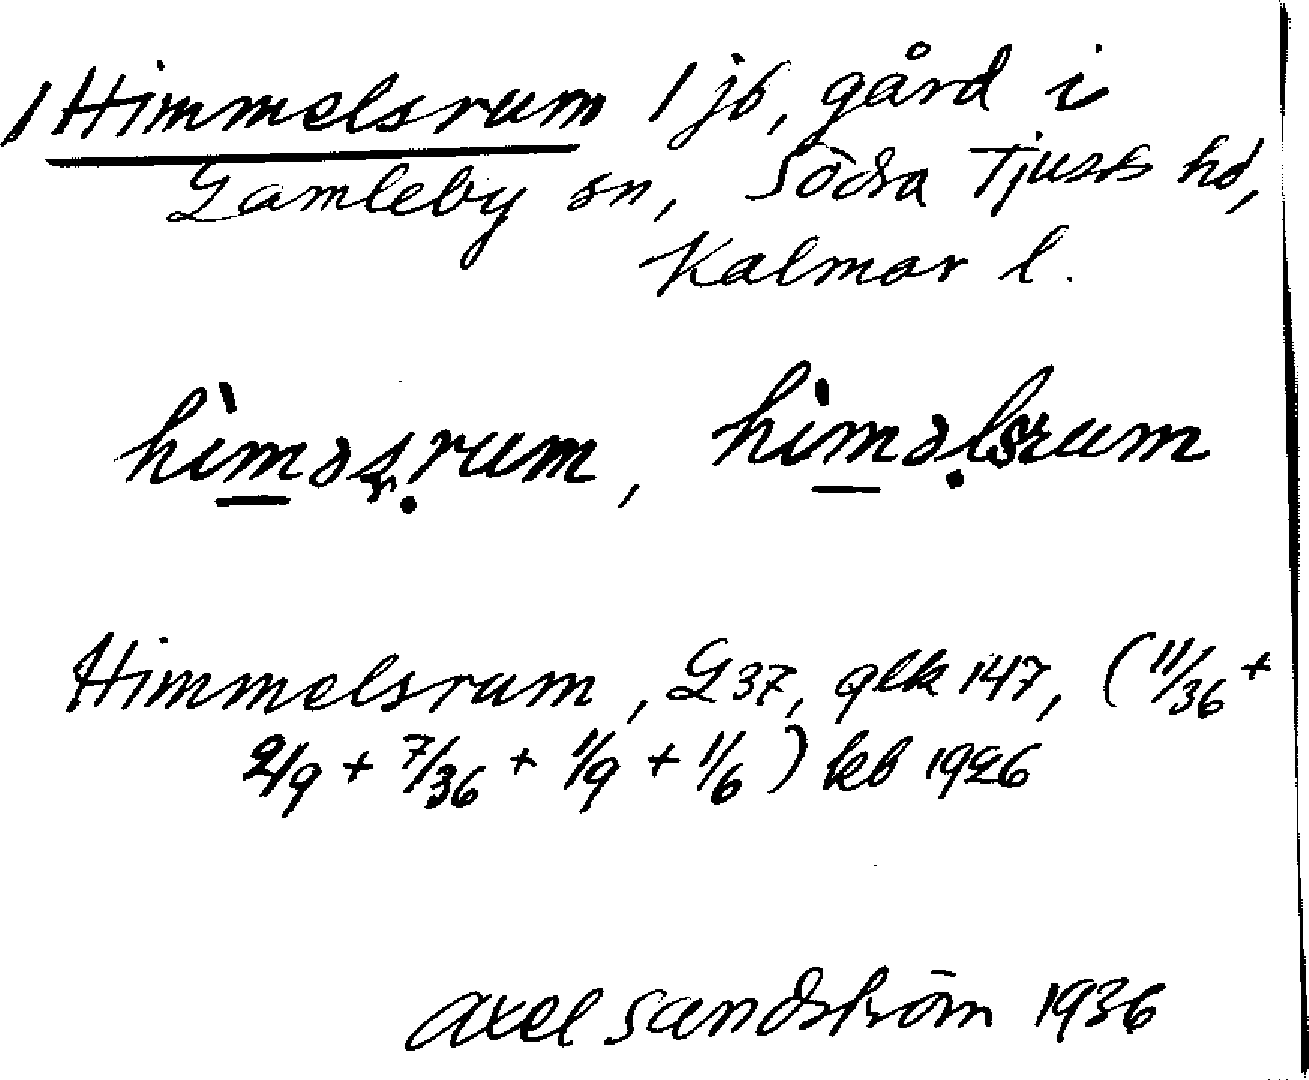 1 Himmelsrum 1 jb, gård i
Gamleby sn, Södra Tjusts hd,
Kalmar l.
hìməs̩rum, hìməlsrum
Himmelsrum, G 37, glk 147, (11/36 +
2/9 + 7/36 + 1/9 + 1/6) kb 1926
Axel Sandström 1936